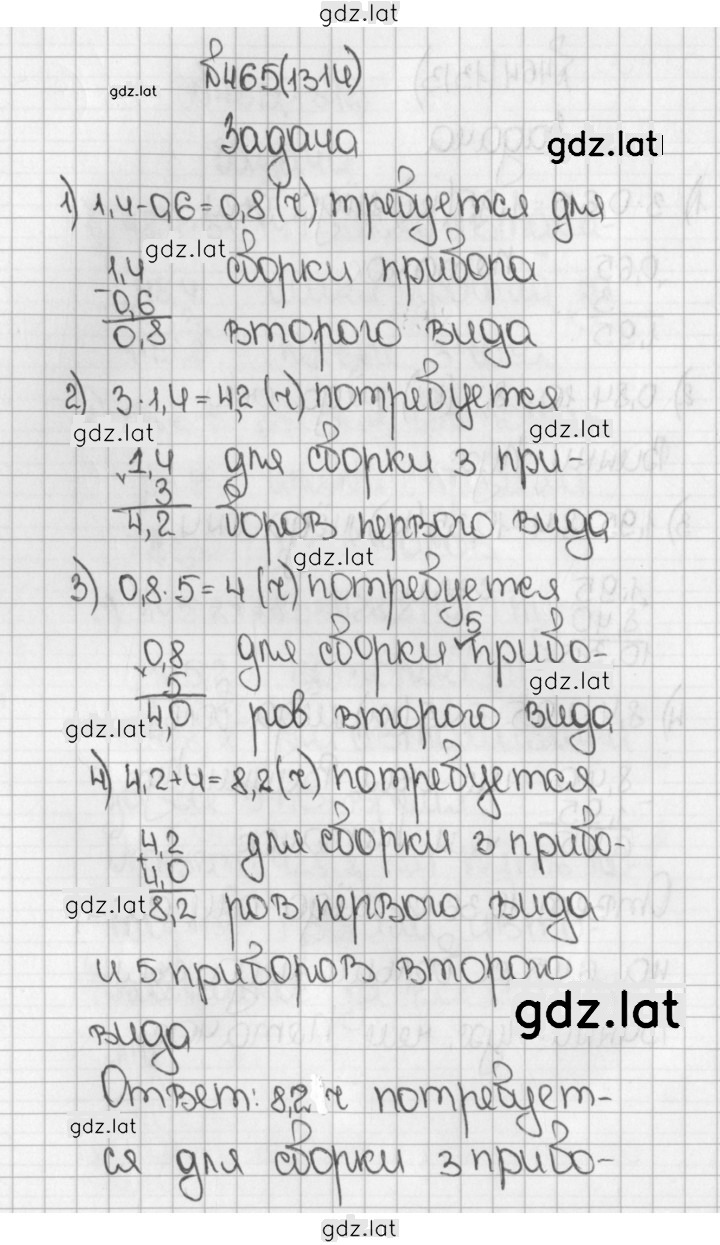 gdz.lat
№465(1314)
gdz.lat
Задача
gdz.lat
1) 1,4-0,6=0,8(ч) требуется для
gdz.lat
1,4 сборки прибора
-0,6
0,8 второго вида
2) 3·1,4=4,2(ч) потребуется
gdz.lat
gdz.lat
×1,4 для сборки 3 при-
3
4,2 боров первого вида
gdz.lat
3) 0,8·5=4(ч) потребуется
5
×0,8 для сборки ✓ прибо-
5
gdz.lat
4,0 ров второго вида
gdz.lat
4) 4,2+4=8,2(ч) потребуется
4,2 для сборки 3 прибо-
+4,0
gdz.lat
8,2 ров первого вида
и 5 приборов второго
gdz.lat
вида
Ответ: 8,2 ч потребует-
gdz.lat
ся для сборки 3 прибо-
gdz.lat